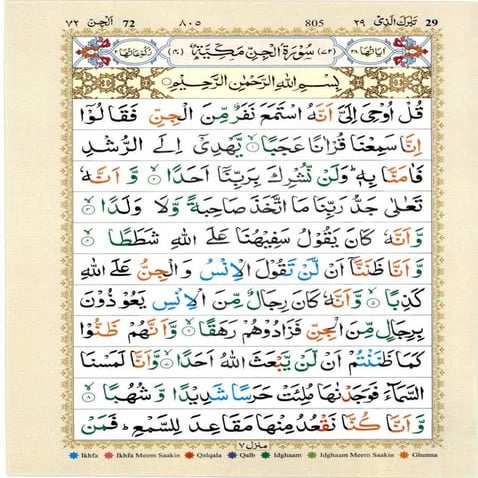 ٧٢ اَلْجِنّ 72 ٨٠٥ 805 ٢٩ تَبٰرَكَ الَّذِىْ 29
اٰيَاتُهَا ٢٨ (٧٢) سُوْرَةُ الْجِنِّ مَكِّيَّةٌ (٤٠) رُكُوْعَاتُهَا ٢
بِسْمِ اللّٰهِ الرَّحْمٰنِ الرَّحِيْمِ
قُلْ اُوْحِىَ اِلَىَّ اَنَّهُ اسْتَمَعَ نَفَرٌ مِّنَ الْجِنِّ فَقَالُوْٓا
اِنَّا سَمِعْنَا قُرْاٰنًا عَجَبًا ۙ۱ يَّهْدِىْٓ اِلَى الرُّشْدِ
فَاٰمَنَّا بِهٖ ؕ وَلَنْ نُّشْرِكَ بِرَبِّنَآ اَحَدًا ۙ۲ وَّ اَنَّهٗ
تَعٰلٰى جَدُّ رَبِّنَا مَا اتَّخَذَ صَاحِبَةً وَّلَا وَلَدًا ۙ۳
وَّ اَنَّهٗ كَانَ يَقُوْلُ سَفِيْهُنَا عَلَى اللّٰهِ شَطَطًا ۙ۴
وَّ اَنَّا ظَنَنَّآ اَنْ لَّنْ تَقُوْلَ الْاِنْسُ وَ الْجِنُّ عَلَى اللّٰهِ
كَذِبًا ۙ۵ وَّاَنَّهٗ كَانَ رِجَالٌ مِّنَ الْاِنْسِ يَعُوْذُوْنَ
بِرِجَالٍ مِّنَ الْجِنِّ فَزَادُوْهُمْ رَهَقًا ۙ۶ وَّاَنَّهُمْ ظَنُّوْا
كَمَا ظَنَنْتُمْ اَنْ لَّنْ يَّبْعَثَ اللّٰهُ اَحَدًا ۙ۷ وَّاَنَّا لَمَسْنَا
السَّمَآءَ فَوَجَدْنٰهَا مُلِئَتْ حَرَسًا شَدِيْدًا وَّ شُهُبًا ۙ۸
وَّ اَنَّا كُنَّا نَقْعُدُ مِنْهَا مَقَاعِدَ لِلسَّمْعِ ؕ فَمَنْ
منزل ٧
Ikhfa Ikhfa Meem Saakin Qalqala Qulb Idghaam Idghaam Meem Saakin Ghunna